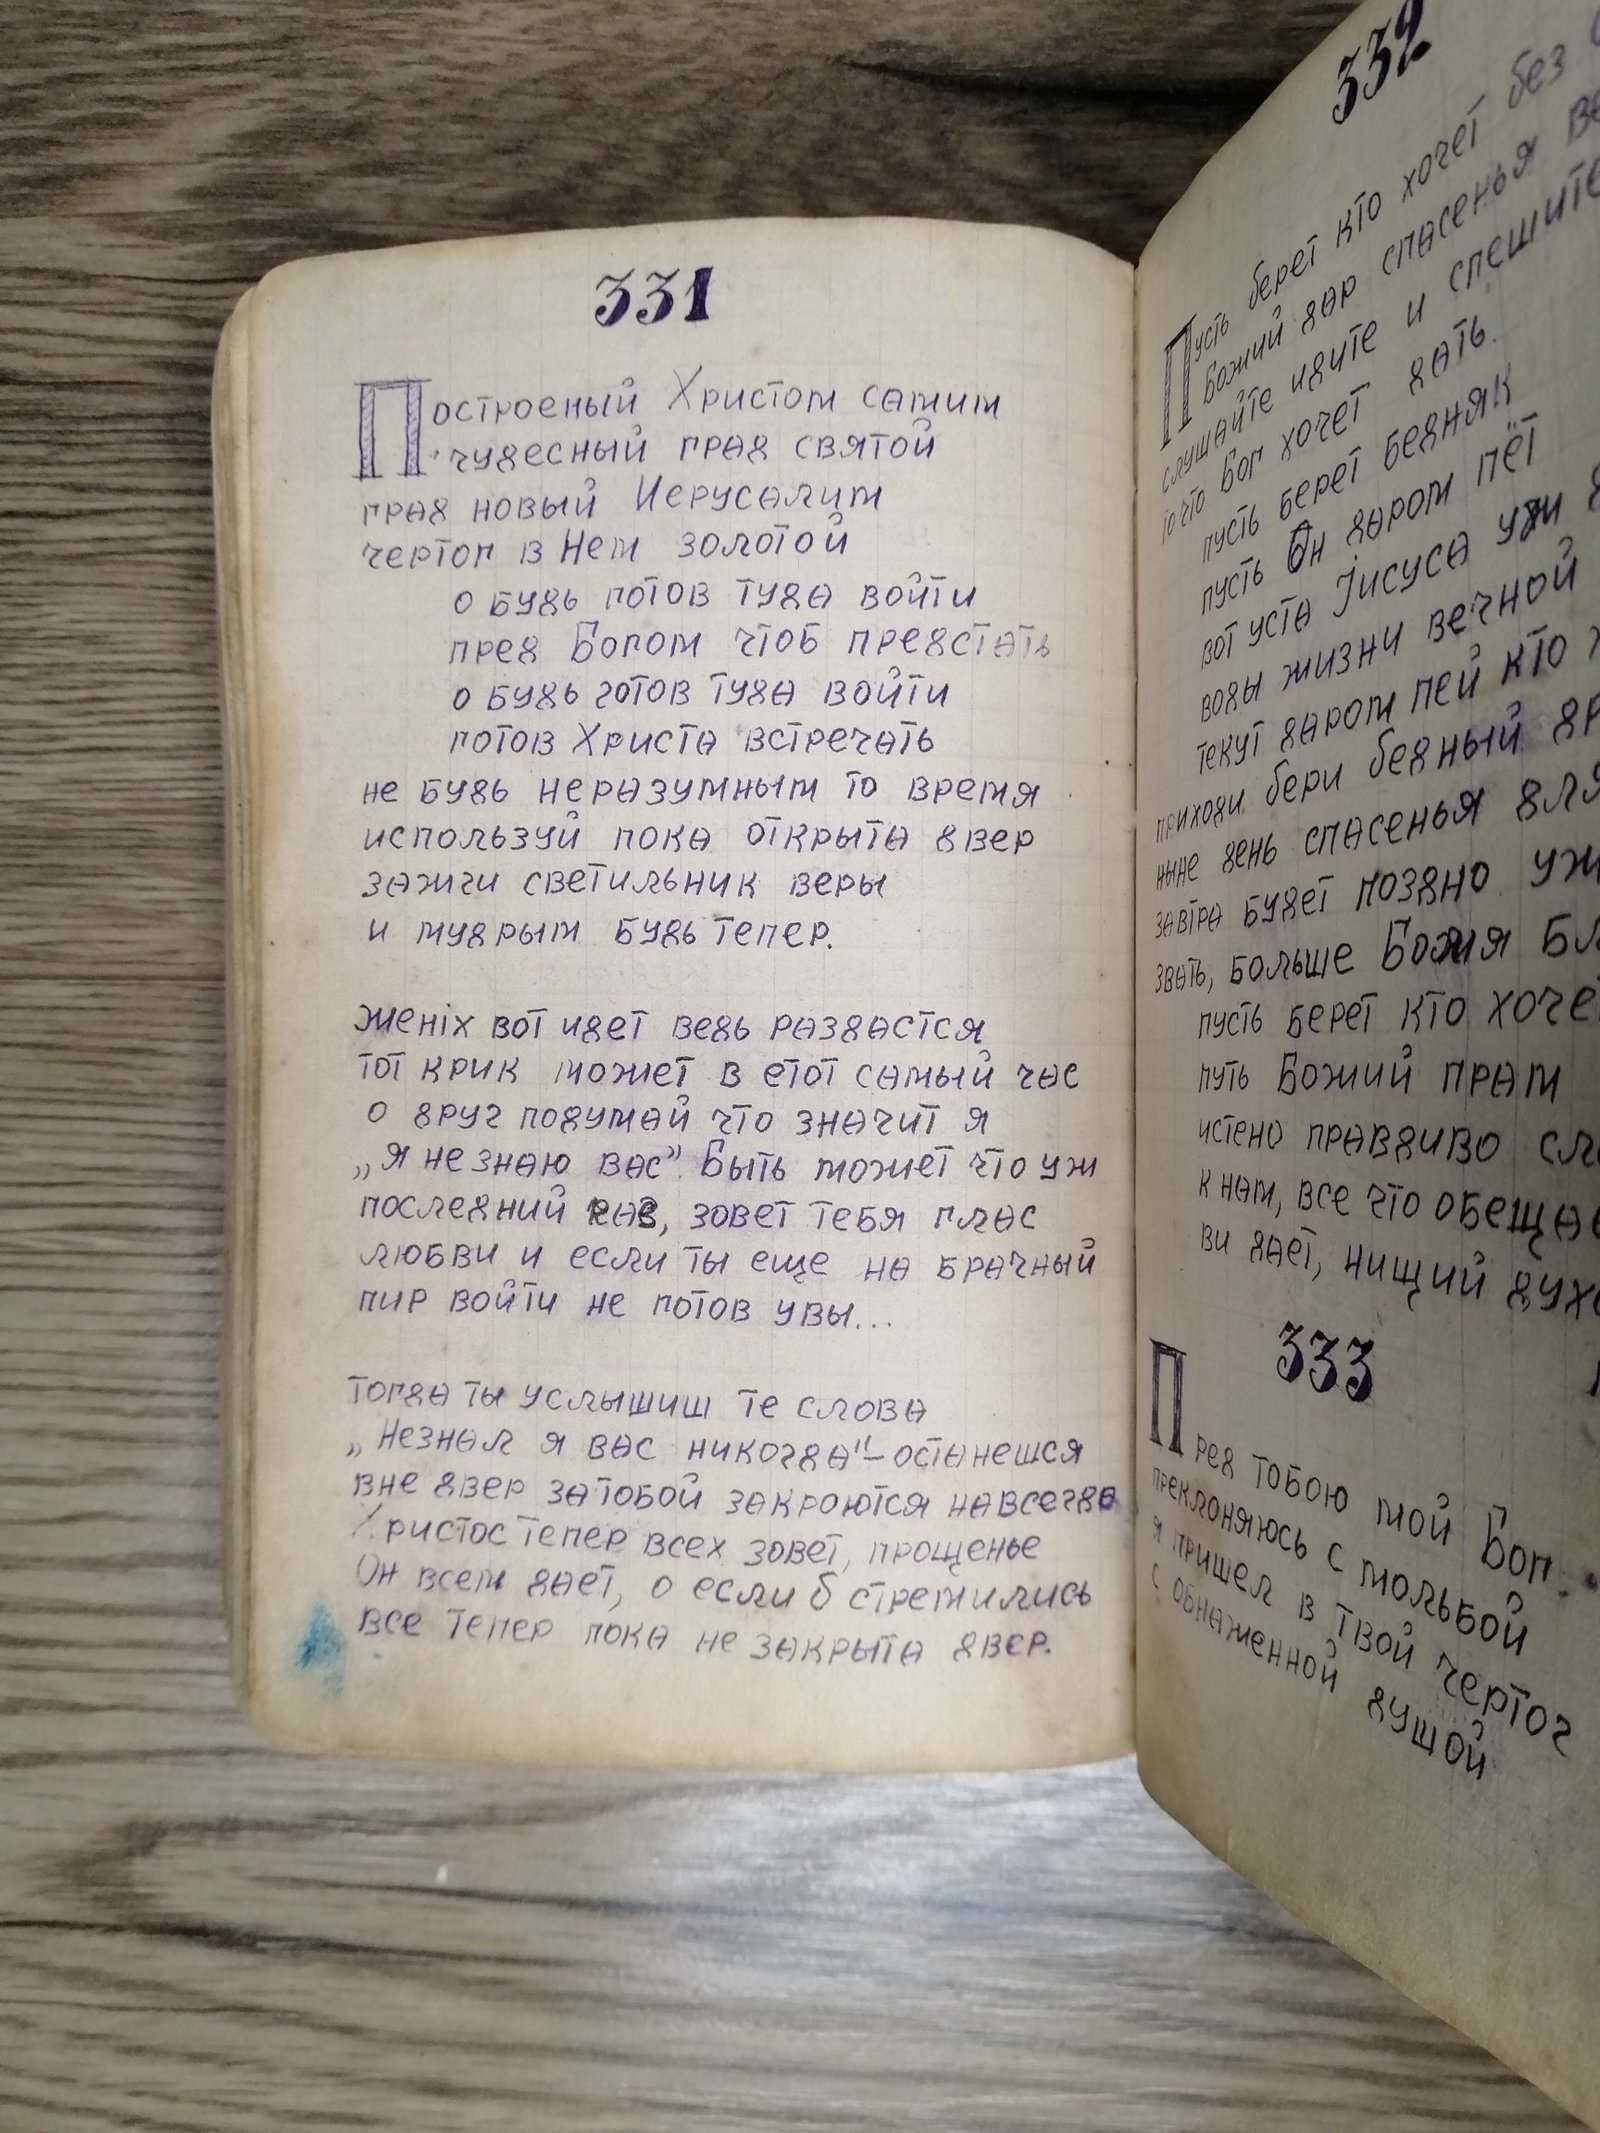 331
Построеный Христом самим
чудесный град святой
град новый Иерусалим
чертог в Нем золотой
о будь готов туда войти
пред Богом чтоб предстать
о будь готов туда войти
готов Христа встречать
не будь неразумным то время
используй пока открыта двер
зажги светильник веры
и мудрым будь тепер.
женіх вот идет ведь раздастся
тот крик может в етот самый час
о друг подумай что значит я
„я не знаю вас". Быть может что уж
последний раз, зовет тебя глас
любви и если ты еще на брачный
пир войти не готов увы...
тогда ты услышиш те слова
„Незнал я вас никогда"– останешся
вне двер за тобой закроются навсегда
Христос тепер всех зовет, прощенье
Он всем дает, о если б стремились
все тепер пока не закрыта двер.
332
Пусть берет кто хочет без
Божий дар спасенья
слушайте идите и спешите
то что Бог хочет дать.
пусть берет бедняк
пусть Он даром пёт
вот уста Іисуса
воды жизни вечной
текут даром пей кто
приходи бери бедный
ныне день спасенья для
завтра будет поздно уж
звать, больше Божия
пусть берет кто хочет
путь Божий прам
истено правдиво
к нам, все что
ви дает, нищий
333
Пред тобою мой Бог
преклоняюсь с мольбой
я пришел в твой чертог
с обнаженной душой